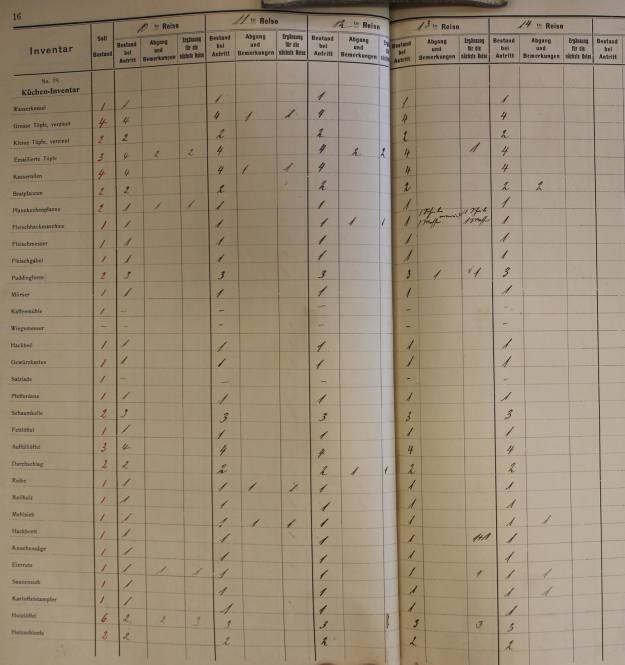 16
10 te Reise 11 te Reise 12 te Reise 13 te Reise 14 te Reise
Inventar Soll Bestand Bestand bei Antritt Abgang und Bemerkungen Ergänzung für die nächste Reise Bestand bei Antritt Abgang und Bemerkungen Ergänzung für die nächste Reise Bestand bei Antritt Abgang und Bemerkungen Bestand bei Antritt Abgang und Bemerkungen Ergänzung für die nächste Reise Bestand bei Antritt Abgang und Bemerkungen Ergänzung für die nächste Reise Bestand bei Antritt
Küchen-Inventar
Wasserkessel 1 1 1 1 1 1
Grosse Töpfe, verzinnt 4 4 4 1 1 4 4 4
Kleine Töpfe, verzinnt 2 2 2 2 2 2
Emaillierte Töpfe 3 4 2 2 4 4 2 2 4 1 4
Kasserollen 4 4 4 1 1 4 4 4
Bratpfannen 2 2 2 2 2 2 2
Pfannkuchenpfanne 2 1 1 1 1 1 1 1
Fleischhackmaschine 1 1 1 1 1 1 1 1
Fleischmesser 1 1 1 1 1 1
Fleischgabel 1 1 1 1 1 1
Puddingform 2 3 3 3 3 1 1 3
Mörser 1 1 1 1 1 1
Kaffeemühle 1 – – – – –
Wiegemesser – – – – – –
Hackbeil 1 1 1 1 1 1
Gewürzkasten 1 1 1 1 1 1
Salzlade 1 – – – – –
Pfefferdose 1 1 1 1 1 1
Schaumkelle 2 3 3 3 3 3
Fettlöffel 1 1 1 1 1 1
Auffüllöffel 3 4 4 4 4 4
Durchschlag 2 2 2 2 1 1 2 2
Reibe 1 1 1 1 1 1 1
Rollholz 1 1 1 1 1 1
Mehlsieb 1 1 1 1 1 1 1 1 1
Hackbrett 1 1 1 1 1 1
Knochensäge 1 1 1 1 1 1
Eierrute 1 1 1 1 1 1 1 1 1
Saucensieb 1 1 1 1 1 1 1
Kartoffelstampfer 1 1 1 1 1 1
Holzlöffel 6 2 2 3 3 3 3 3 3 3
2 2 2 2 2 2